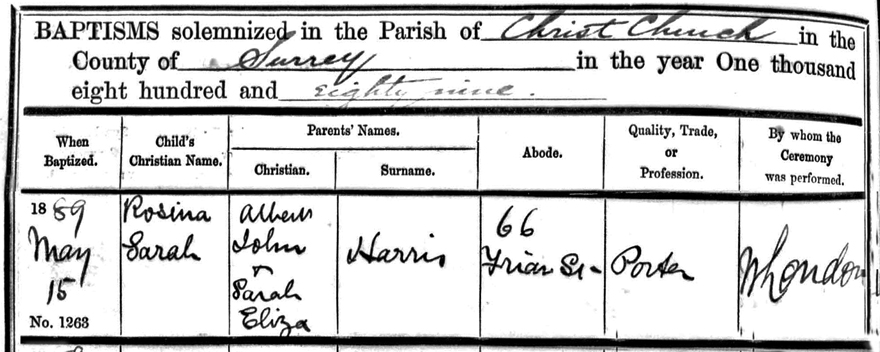 BAPTISMS solemnized in the Parish of Christ Church in the
County of Surrey in the year One thousand
eight hundred and eighty nine.
When Baptized.
Child's Christian Name.
Parents' Names.
Christian.
Surname.
Abode.
Quality, Trade, or Profession.
By whom the Ceremony was performed.
1889
May
15
No. 1263
Rosina
Sarah
Albert
John
+
Sarah
Eliza
Harris
66
Friar St
Porter